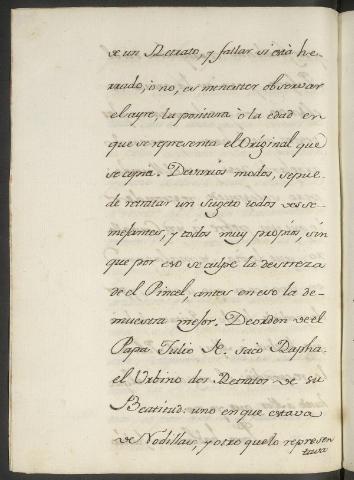 de un Retrato, y fallar si està he-
rrado, ò no, es menester observar
el ayre, la postura ò la edad en
que se representa el Original que
se copia. De varios modos, se pue-
de retratar un Sugeto todos dese-
mejantes, y todos muy propios, sin
que por eso se culpe la destreza
de el Pincel, antes en eso la de-
muestra mejor. De orden de el
Papa Julio II. sacò Rapha-
el Urbino dos Retratos de su
Beatitud: uno en que estava
de Rodillas, y otro que lo represen
tava